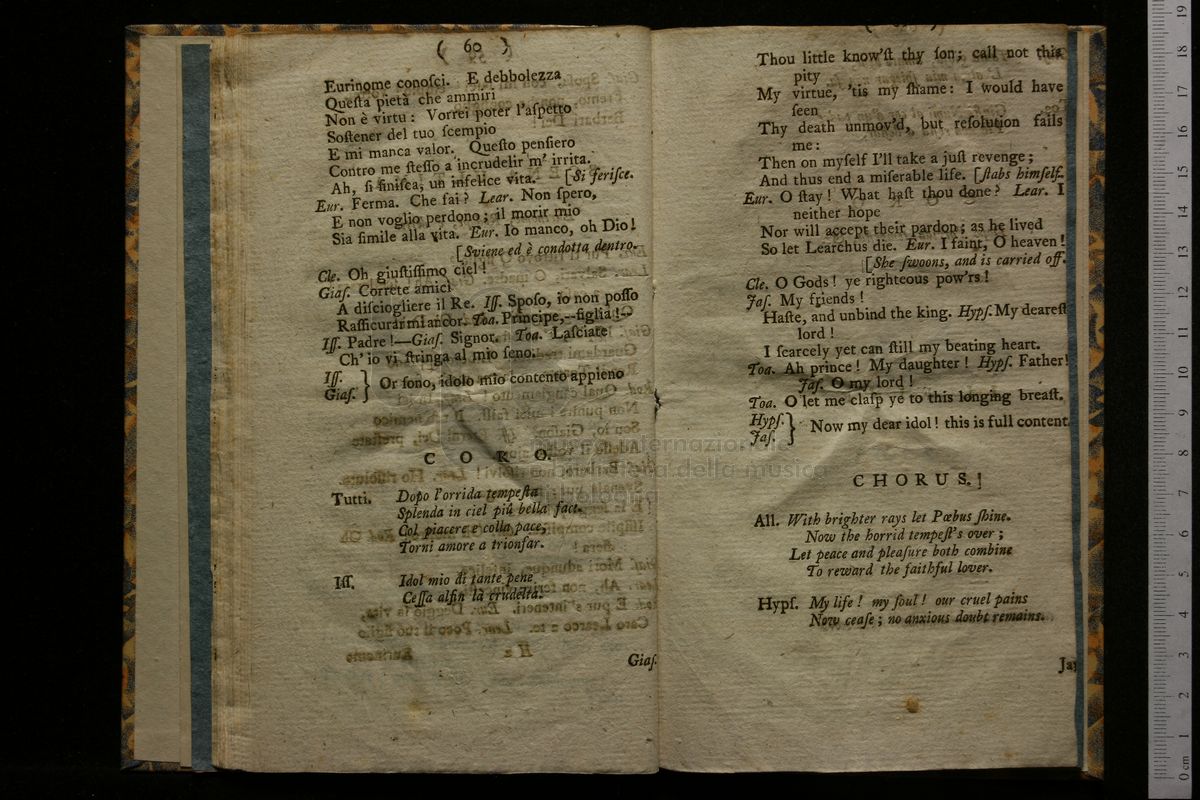 ( 60 )
Eurinome conoſci. E debbolezza
Queſta pietà che ammiri
Non è virtu: Vorrei poter l'aſpetto
Soſtener del tuo ſcempio
E mi manca valor. Queſto penſiero
Contro me ſteſſo a incrudelir m' irrita.
Ah, ſi finiſca, un infelice vita. [Si feriſce.
Eur. Ferma. Che fai? Lear. Non ſpero,
E non voglio perdono; il morir mio
Sia ſimile alla vita. Eur. Io manco, oh Dio!
[Sviene ed è condotta dentro.
Cle. Oh giuſtiſſimo ciel!
Giaſ. Correte amici
A diſciogliere il Re. Iſſ. Spoſo, io non poſſo
Raſſicurarmi ancor. Toa. Principe,--figlia!--
Iſſ. Padre!—Giaſ. Signor. Toa. Laſciate
Ch' io vi ſtringa al mio ſeno.
Iſſ. } Or ſono, idolo mio contento appieno
Giaſ.
CORO.
Tutti. Dopo l'orrida tempeſta
Splenda in ciel più bella face.
Col piacere e colla pace,
Torni amore a trionfar.
Iſſ. Idol mio di tante pene
Ceſſa alfin la crudeltà!
Giaſ.
Thou little know'ſt thy ſon; call not this
pity
My virtue, 'tis my ſhame: I would have
ſeen
Thy death unmov'd, but reſolution fails
me:
Then on myſelf I'll take a juſt revenge;
And thus end a miſerable life. [ſtabs himſelf.
Eur. O ſtay! What haſt thou done? Lear. I
neither hope
Nor will accept their pardon; as he lived
So let Learchus die. Eur. I faint, O heaven!
[She ſwoons, and is carried off.
Cle. O Gods! ye righteous pow'rs!
Jaſ. My friends!
Haſte, and unbind the king. Hypſ. My deareſt
lord!
I ſcarcely yet can ſtill my beating heart.
Toa. Ah prince! My daughter! Hypſ. Father!
Jaſ. O my lord!
Toa. O let me claſp ye to this longing breaſt.
Hypſ. } Now my dear idol! this is full content
Jaſ.
CHORUS.!
All. With brighter rays let Pœbus ſhine.
Now the horrid tempeſt's over;
Let peace and pleaſure both combine
To reward the faithful lover.
Hypſ. My life! my ſoul! our cruel pains
Now ceaſe; no anxious doubt remains.
museo internazionale
e biblioteca della musica
di bologna